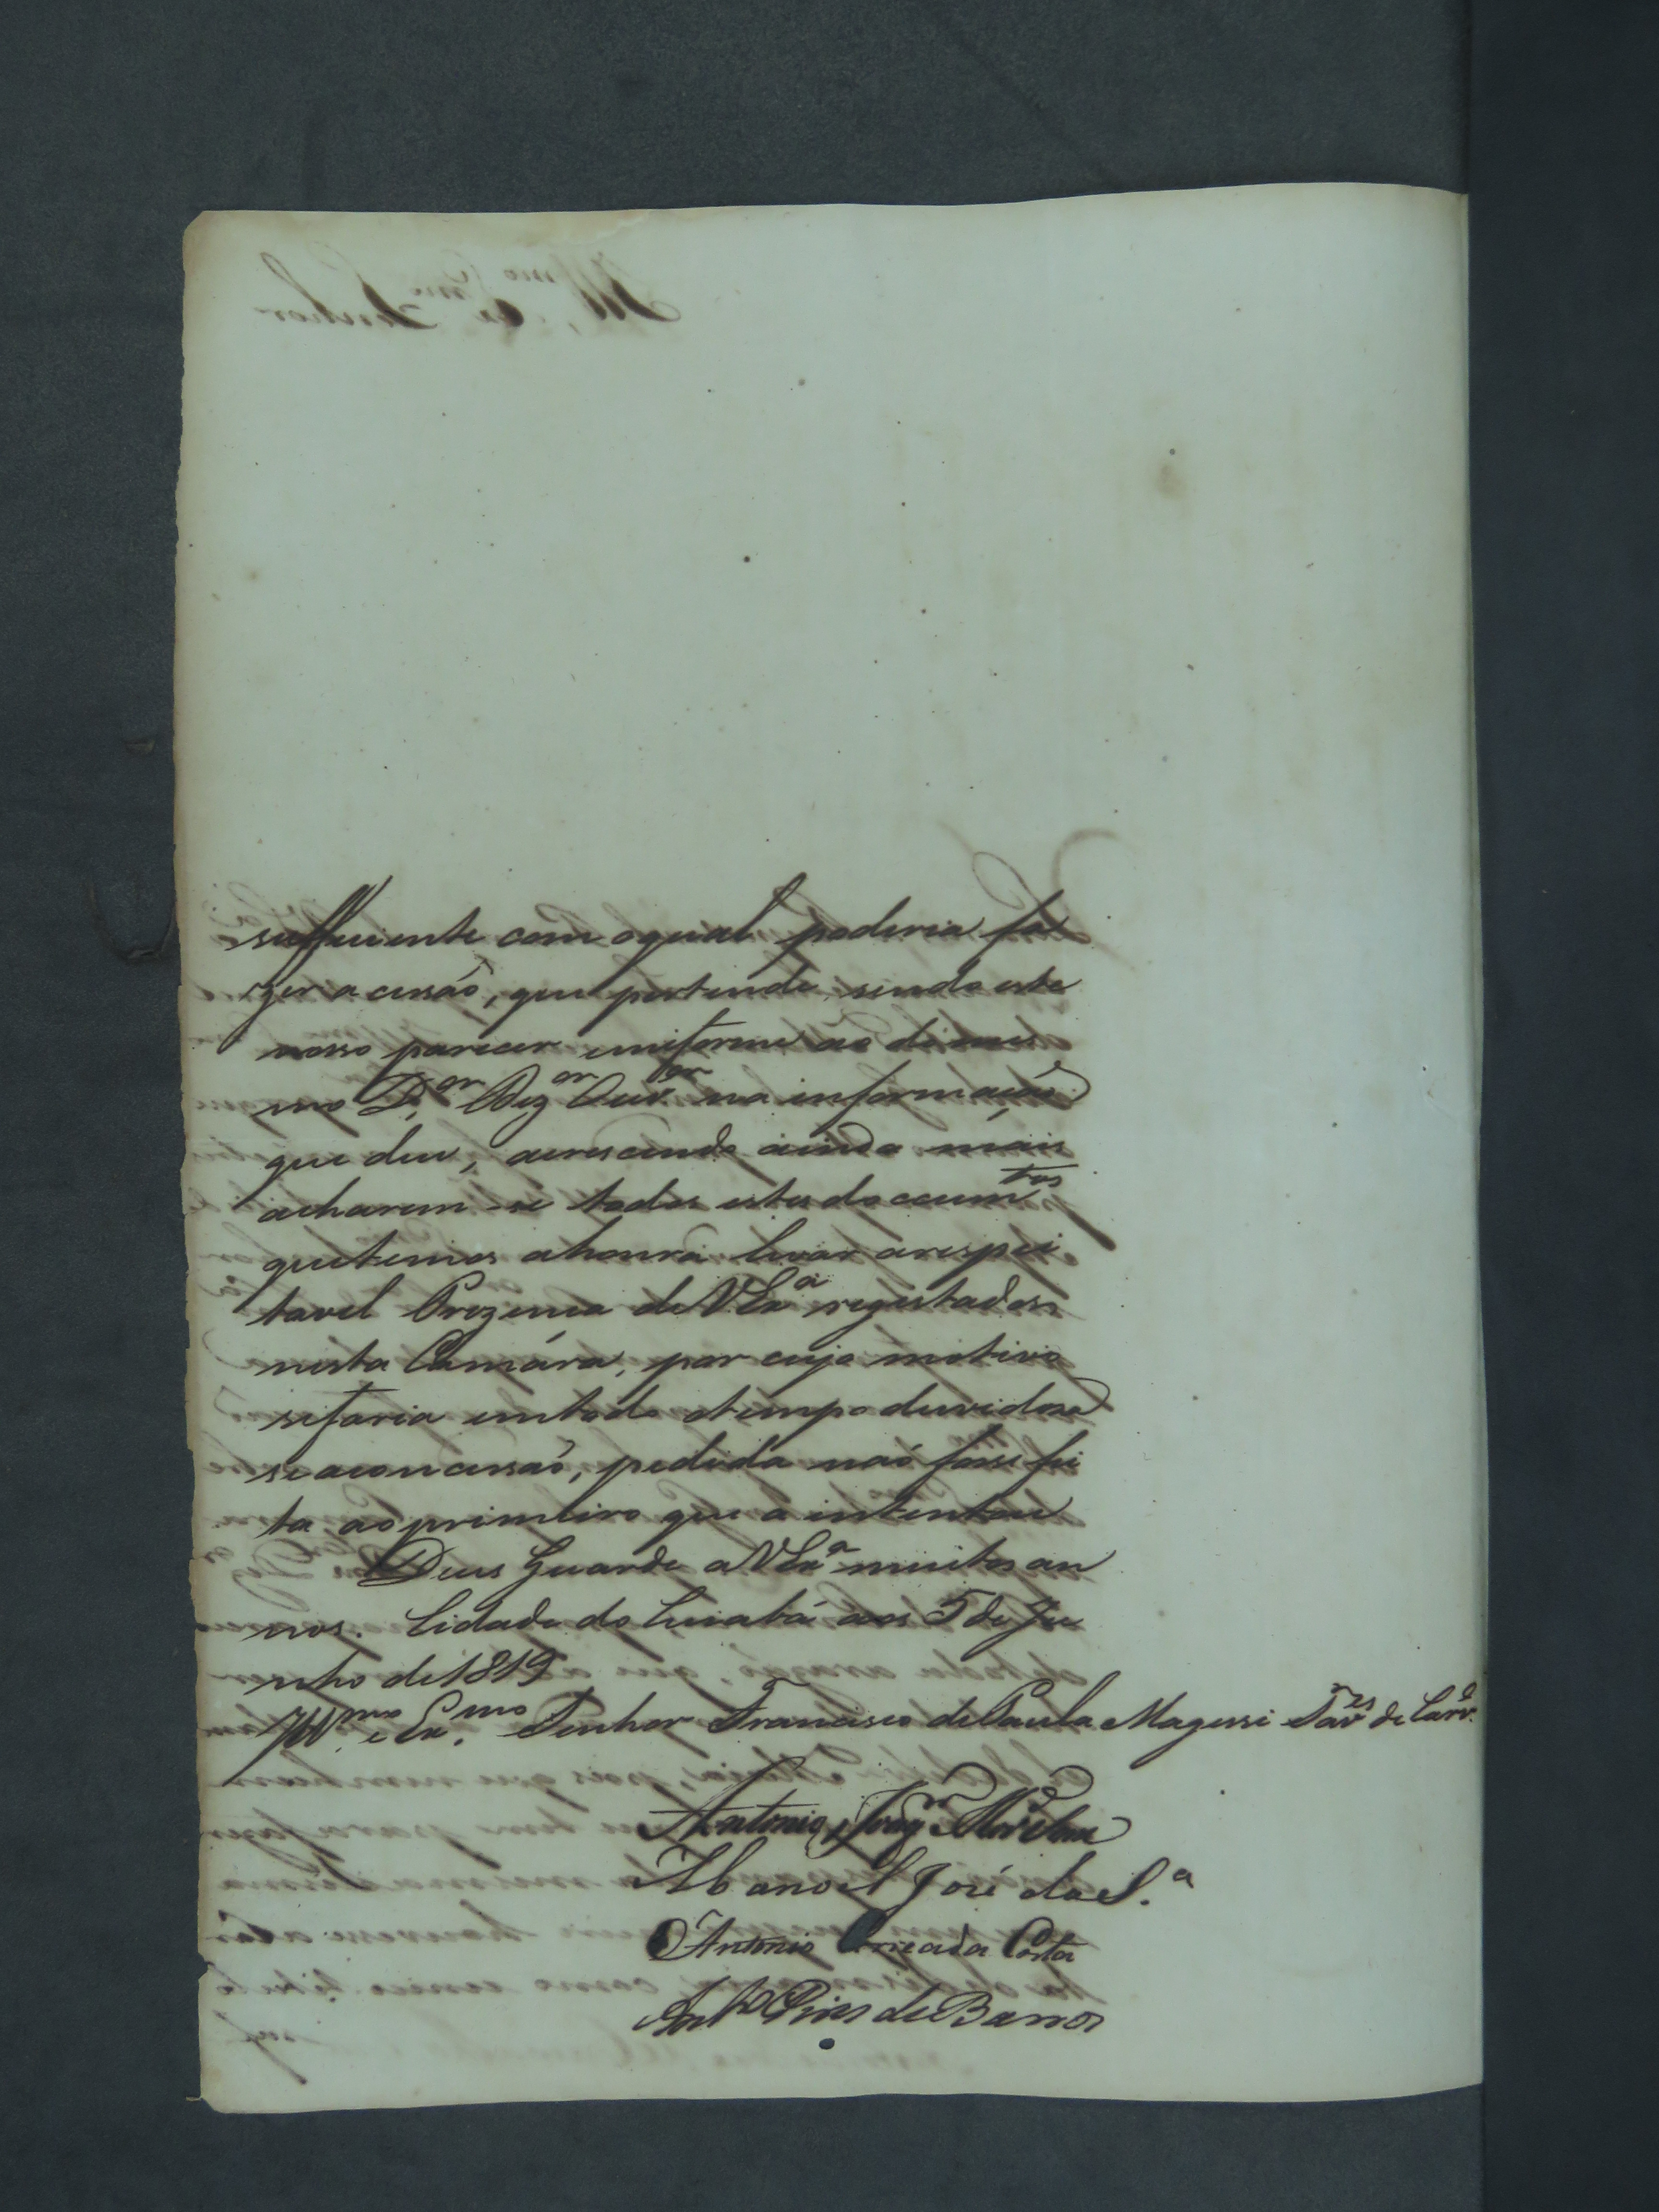 sufficiente com oqual poderia fa
zer a cessaõ, que pertende, sendo este
nosso parecer uniforme ao do mes
mo D.or Dez.or Ouv.or na informaçaõ
que deu, acrescendo ainda mais
acharem-se todos estes documtos
quetemos ahonra levar arespei
tavel Prezença de VExa registados
nesta Camára, por cujo motivo
sefaria emtodo otempo duvidosa
se aconcessaõ, pedida naõ fosse fei
ta ao primeiro que a intentou
Deus Guarde a VExa muitos an
nos. Cidade do Cuiabá aos 5 de Ju
nho de 1819
Illmo e Exmo Senhor Francisco de Paula Magessi Tavres de Carvo
Antonio Joaqm
Manoel José da S.a
Antonio Correa da Costa
Anto Pires de Barros